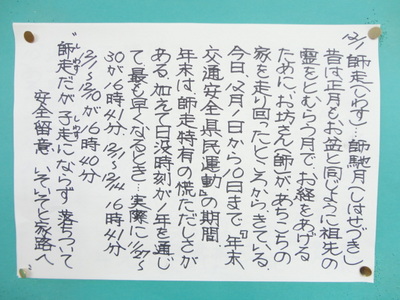 12/1 師走(しわす)…師馳月(しはせづき)
昔は正月も、お盆と同じように祖先の
霊をとむらう月で、お経をあげる
ために、お坊さん(師)が、あちこちの
家を走り回ったところからきている。
今日、12月1日から10日まで『年末
交通安全県民運動』の期間。
年末は、師走特有の慌ただしさが
ある。加えて日没時刻が1年を通じ
て最も早くなるとき…実際に11/27〜
30が16時41分、12/11〜12/14 16時41分
12/1〜12/10が16時40分
"師走だが子走にならず 落ちついて
安全留意 いそいそと家路へ